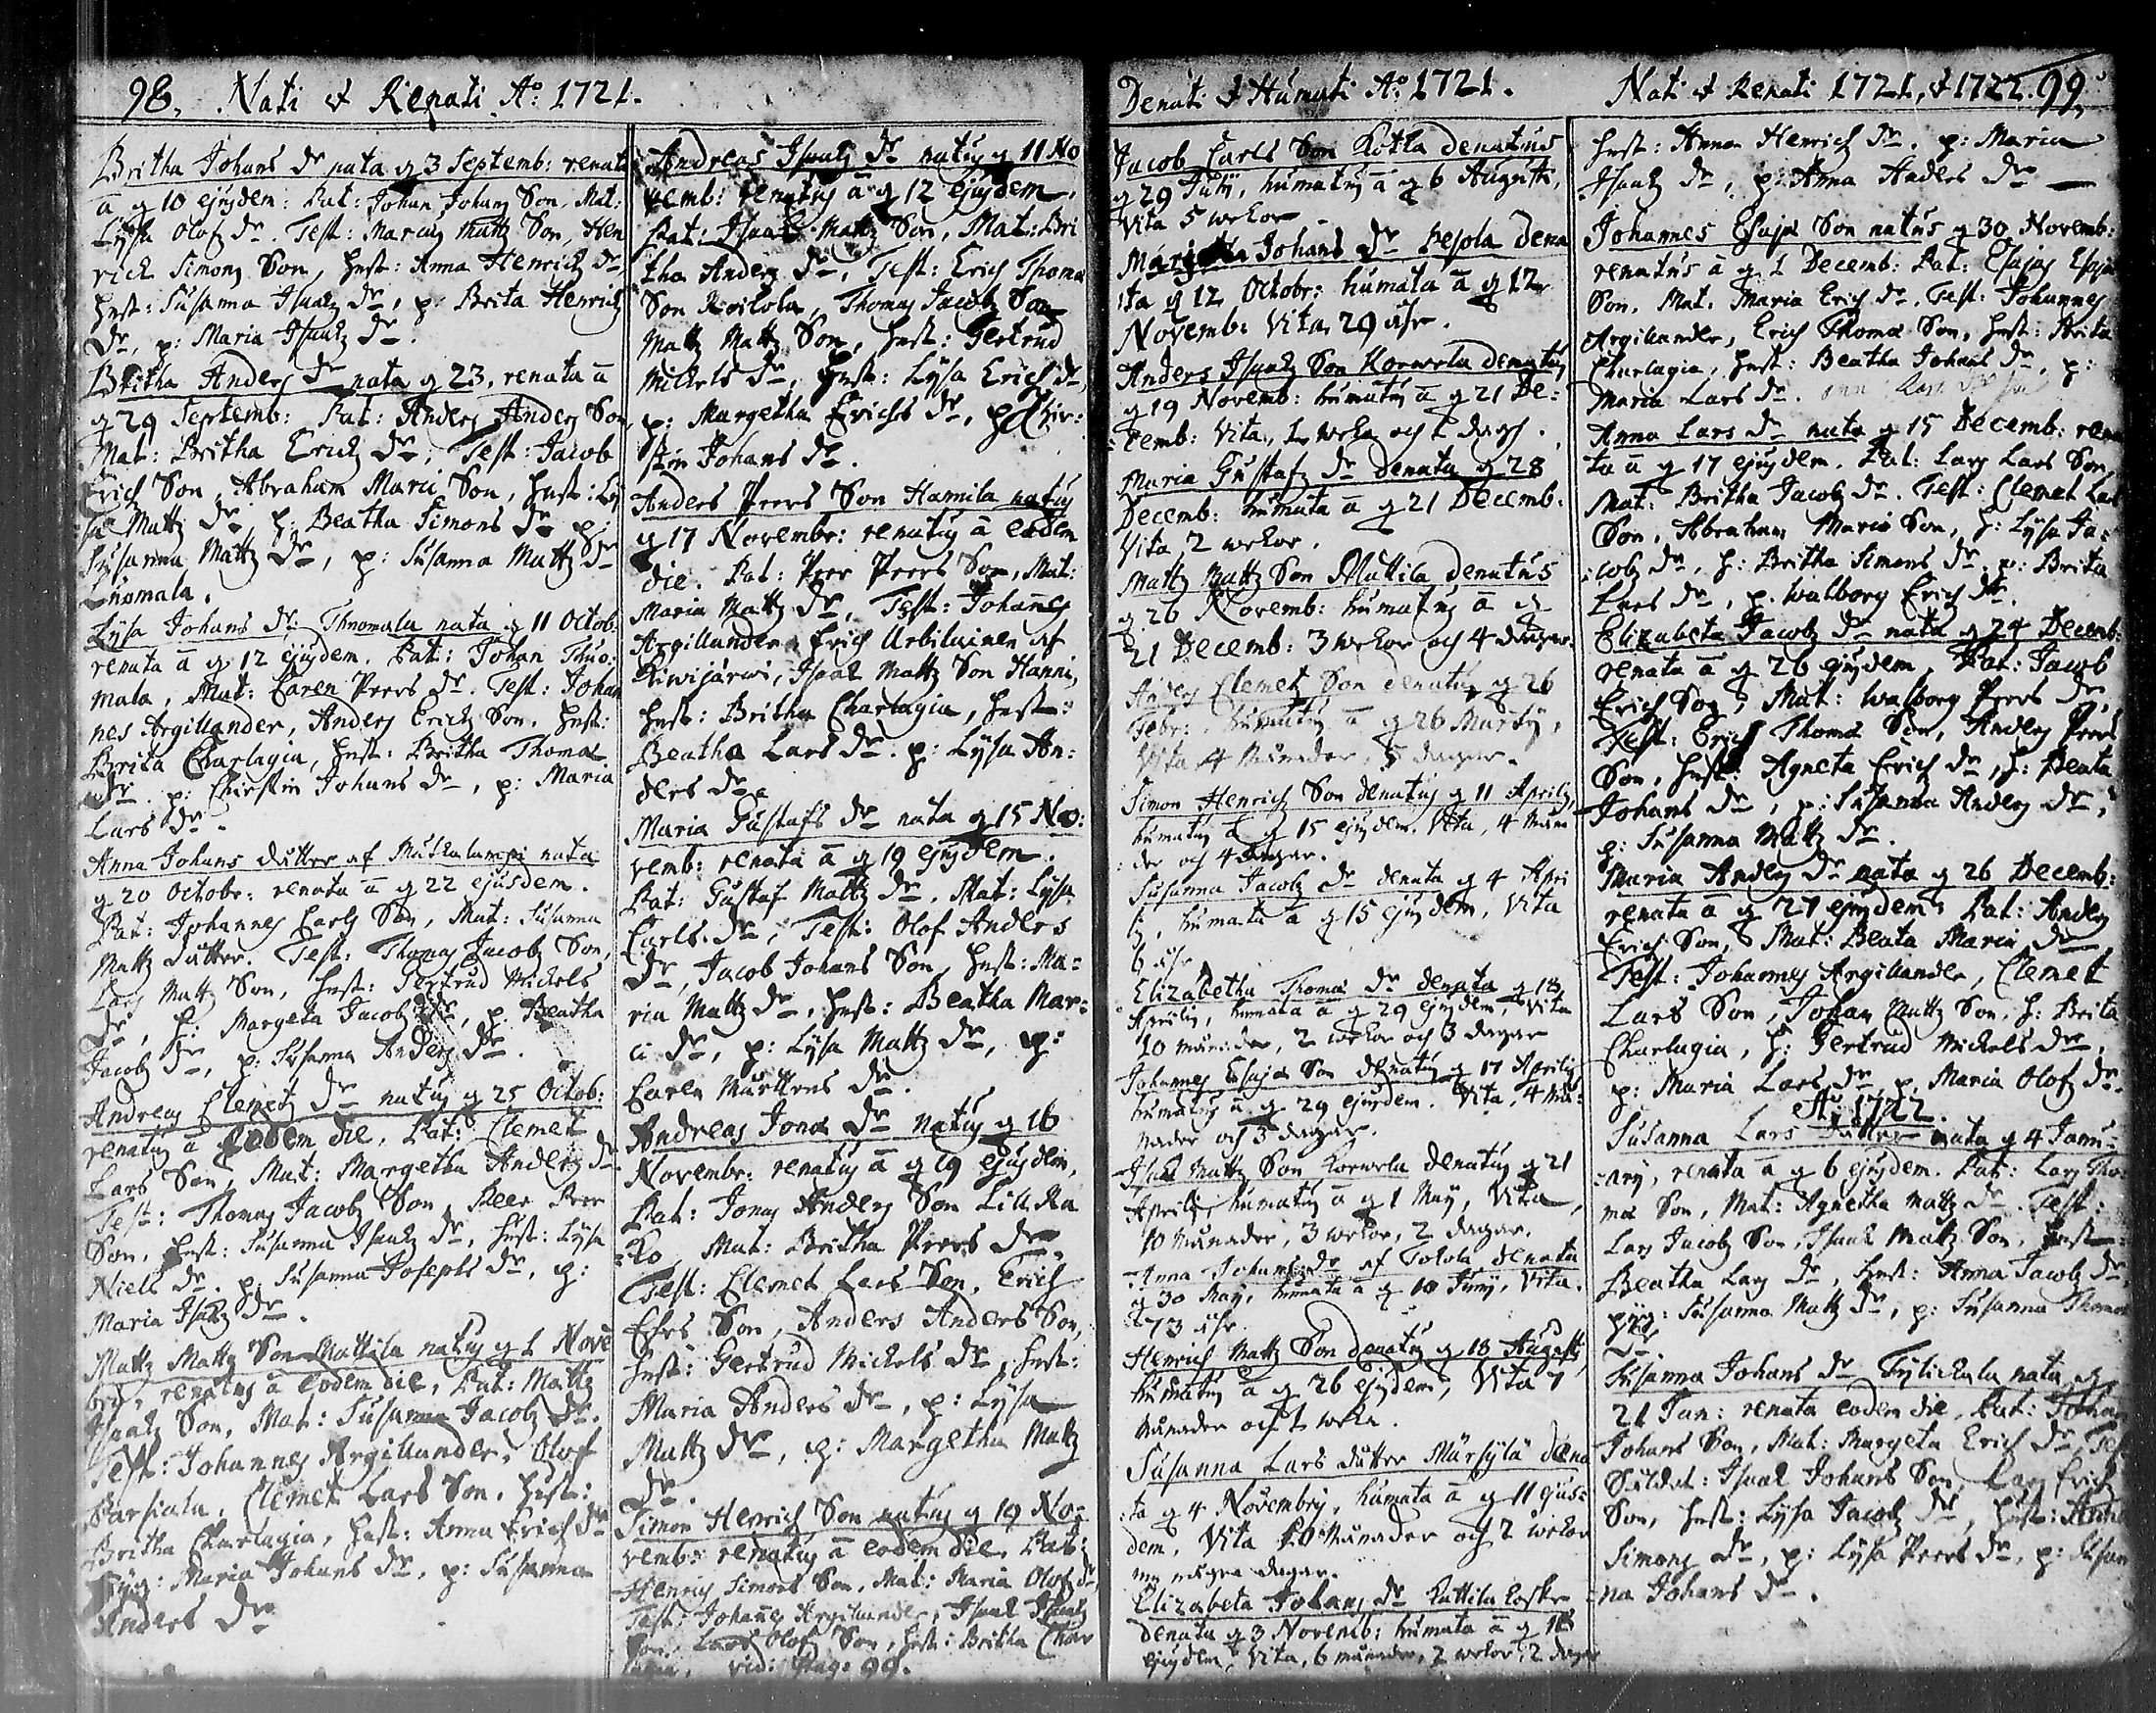 98. Nati & Renati Aº: 1721.
Britha Johans dr nata q 3 Septemb: renata
a q 10 ejusdem: Pat: Johan Johans Son, Mat:
Lysa Olofz dr. Test: Marcus Mattz Son, Hen
rick Simons Son, Hust: Anna Henrichz dr
Hust: Susanna Isaakz dr, p: Brita Henrichz
dr, p: Maria Isaakz dr.
Britha Anders dr nata q 23, renata a
q 29 Septemb: Pat: Anders Anders Son
Mat: Britha Erickz dr, Test: Jacob
Erich Son, Abraham Marci Son, Hust: Ly
sa Mattz dr, h: Beatha Simons dr p:
Susanna Mattz dr, p: Susanna Mattz dr
Lysa Johans dr: Thuomala nata q 11 Octob:
renata a q 12 ejusdem. Pat: Johan Thuo:
mala, Mat: Caren Peers dr. Test: Johan
nes Argillander, Anders Erichz Son. Hust:
Brita Charlagia, Hust: Britha Thomæ
dr. p: Chirstin Johans dr, p: Maria
Lars dr.
Anna Johans dutter af nata
q 20 Octobr: renata a q 22 ejusdem.
Pat: Johannes Carls Son, Mat: Susanna
Mattz dutter. Test: Thomas Jacobz Son,
Lars Mattz Son, Hust: Gertrud Mickels
dr, h: Margeta Jacobz dr, p. Beatha
Jacobz dr, p: Susanna Anders dr.
Andreas Clemetz dr natus q 25 Octob:
renatus a eodem die, Pat: Clemet
Lars Son, Mat: Margetha Anders dr
Test: Thomas Jacobz Son, Peer Peer
Son, Hust: Susanna Isaakz dr, Hust: Lysa
Niels dr. p: Susanna Josephs dr, p:
Maria Isakz dr.
Mattz Mattz Son Mattila natus q 1 Nove
bris, renatus a eodem die, Pat: Mattz
Isaakz Son, Mat: Susanna Jacobz dr.
Test: Johannes Argillander, Olof
Clemet Lars Son, Hust:
Britha Charlagia, Hust: Anna Erich dr
Pyg: Maria Johans dr, p: Susanna
Anders dr
Andreas Isaakz dr natus q 11 No
vemb: renatus a q 12 ejusdem,
Pat: Isaak Mattz Son, Mat: Bri
tha Anders dr, Test: Erich Thomæ
Son, Thomas Jacobz Son
Mattz Mattz Son, Hust: Gertrud
Mickels dr, Hust: Lysa Erich dr,
p: Margetha Erichs dr, p: Chir:
stin Johans dr.
Anders Peers Son Hamila natus
q 17 Novembr: renatus a eodem
die. Pat: Peer Peers Son, Mat:
Maria Mattz dr, Test: Johannes
Argillander, Erich af
Kiwijärwi, Isaak Mattz Son Hanni,
Hust: Britha Charlagia, Hust:
Beatha Lars dr. p: Lysa An:
ders dr.
Maria Gustafs dr nata q 15 No:
vemb: renata a q 19 ejusdem.
Pat: Gustaf Mattz dr, Mat: Lysa
Carls dr, Test: Olof Anders
dr, Jacob Johans Son, Hust: Ma:
ria Mattz dr, Hust: Beatha Mar:
ci dr, p: Lysa Mattz dr, p:
Carin Mårttens dr.
Andreas Jonæ dr natus q 16
Novembr: renatus a q 19 ejusdem,
Pat: Jonas Anders Son
Mat: Britha Peers dr.
Test: Clemet Lars Son, Erich
Son, Anders Anders Son,
Hust: Gertrud Mickels dr, Hust:
Maria Anders dr, p: Lysa
Mattz dr, p: Margetha Mattz
dr.
Simon Henrich Son natus q 19 No:
vemb: renatus a eodem die, Pat:
Henrich Simons Son, Mat: Maria Olofz dr,
Test: Johannes Argillander, Isaak
Son, Lars Olofz Son, Hust: Britha Char
lagia, vid: Pag: 99.
Denati & Humati Aº: 1721.
Jacob Carls Son Kotka denatus
q 29 Julij, humatus a q 6 Augusti,
Vita 5 wekor
Margeta Johans dr dena
ta q 12 Octobr: humata a q 12
Novemb: Vita, 29 åhr.
Anders Isaakz Son Korwela denatus
q 19 Novemb: humatus a q 21 De:
cemb: Vita, 1 weka och 1 dagh.
Maria Gustafz dr denata q 28
Decemb: humata a q 21 Decemb:
Vita, 2 wekor.
Mattz Mattz Son Mattila denatus
q 26 Novemb: humatus a q
21 Decemb: 3 wekor och 4 dagar.
Anders Clemetz Son denatus q 26
Febr: humatus a q 26 Martij,
Vita 4 Månader, 5 dagar.
Simon Henrich Son denatus q 11 Aprilis,
humatus a q 15 ejusdem. Vita, 4 Måna
der och 4 dagar.
Susanna Jacobz dr denata q 4 Apri
lis, humata a q 15 ejusdem, Vita
6 åhr
Elizabetha Thomæ dr denata q 18
Aprilis, humata a q 29 ejusdem, Vita
10 månader, 2 wekor och 3 dagar
Johannes Esajæ Son denatus q 17 Aprilis
humatus a q 29 ejusdem. Vita, 4 må:
nader och 3 dagar.
Isaak Mattz Son Korwela denatus q 21
Aprilis, humatus a q 1 Maij, Vita,
10 Månader, 3 wekor, 2 dagar.
Anna Johans dr af Tolola denata
q 30 Maij, humata a q 10 Junij, Vita.
73 åhr.
Henrich Mattz Son denatus q 13 Augusti,
humatus a q 26 ejusdem, Vita 7
månader och 1 weka.
Susanna Lars dutter Mårsylä dena
ta q 4 Novembris, humata a q 11 ejus:
dem, Vita 10 Månader och 2 wekor
några dagar.
Elizabeta Johans dr
denata q 3 Novemb: humata a q 18
ejusdem, Vita, 6 månader, 2 wekor, 2 dagar
Nati & Renati 1721, & 1722. 99.
Hust: Anna Henrich dr. p: Maria
Isaakz dr, p: Anna Anders dr
Johannes Esajæ Son natus q 30 Novemb:
renatus a q 1 Decemb: Pat: Esajas Esajæ
Son, Mat: Maria Erich dr. Test: Johannes
Argillander, Erich Thomæ Son, Hust: Brita
Charlagia, Hust: Beatha Johans dr, p:
Maria Lars dr.
Anna Lars dr nata q 15 Decemb: rena
ta a q 17 ejusdem. Pat: Lars Lars Son,
Mat: Britha Jacobz dr. Test: Clemet Lars
Son, Abraham Marci Son, h: Lysa Ja:
cobz dr, h: Britha Simons dr, p: Brita
Lars dr, p. Walborg Erich dr.
Elizabeta Jacobz dr nata q 24 Decemb:
renata a q 26 ejusdem, Pat: Jacob
Erich Son, Mat: Walborg Peers dr,
Test: Erich Thomæ Son, Anders Peers
Son, Hust: Agneta Erich dr, h: Beata
Johans dr, p: Susanna Anders dr,
p: Susanna Mattz dr.
Maria Anders dr nata q 26 Decemb:
renata a q 27 ejusdem, Pat: Anders
Erich Son, Mat: Beata Marci dr
Test: Johannes Argillander, Clemet
Lars Son, Johan Mattz Son, h: Brita
Charlagia, h: Gertrud Mickels dr,
p: Maria Lars dr, p. Maria Olofz dr.
Aº: 1722.
Susanna Lars dutter nata q 4 Janu:
arij, renata a q 6 ejusdem. Pat: Lars Tho:
mæ Son, Mat: Agnetha Mattz dr. Test:
Lars Jacobz Son, Isaak Mattz Son, Hust:
Beatha Lars dr, Hust: Anna Jacobz dr,
pyg: Susanna Mattz dr, p: Susanna Thomæ
dr.
Susanna Johans dr nata q
21 Jan: renata eodem die, Pat: Johan
Johans Son, Mat: Margeta Erich dr, Test:
Isaak Johans Son, Lars Erich
Son, Hust: Lysa Jacobz dr, Hust: Anna
Simons dr, p: Lysa Peers dr, p: Susan
na Johans dr.